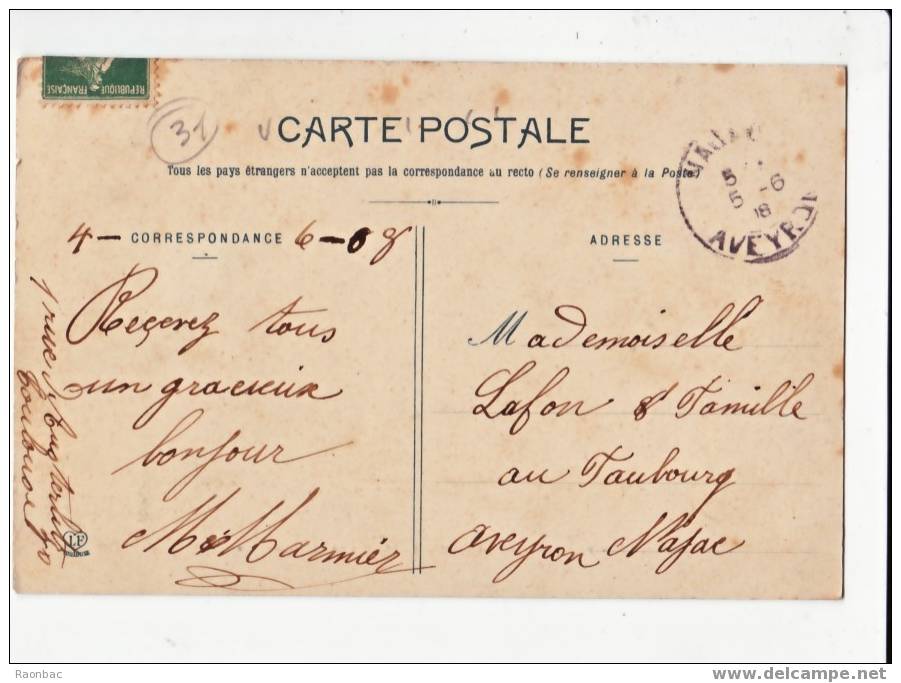 REPUBLIQUE FRANÇAISE
31
CARTE POSTALE
Tous les pays étrangers n'acceptent pas la correspondance au recto (Se renseigner à la Poste)
NAJAC
5 -6
5 08
AVEYRON
4 - CORRESPONDANCE 6 - 08
ADRESSE
Reçevez tous
un gracieux
bonjour
Marmier
Toulouse
Mademoiselle
Lafon & Famille
au Faubourg
Aveyron Najac
LF
Raonbac
www.delcampe.net